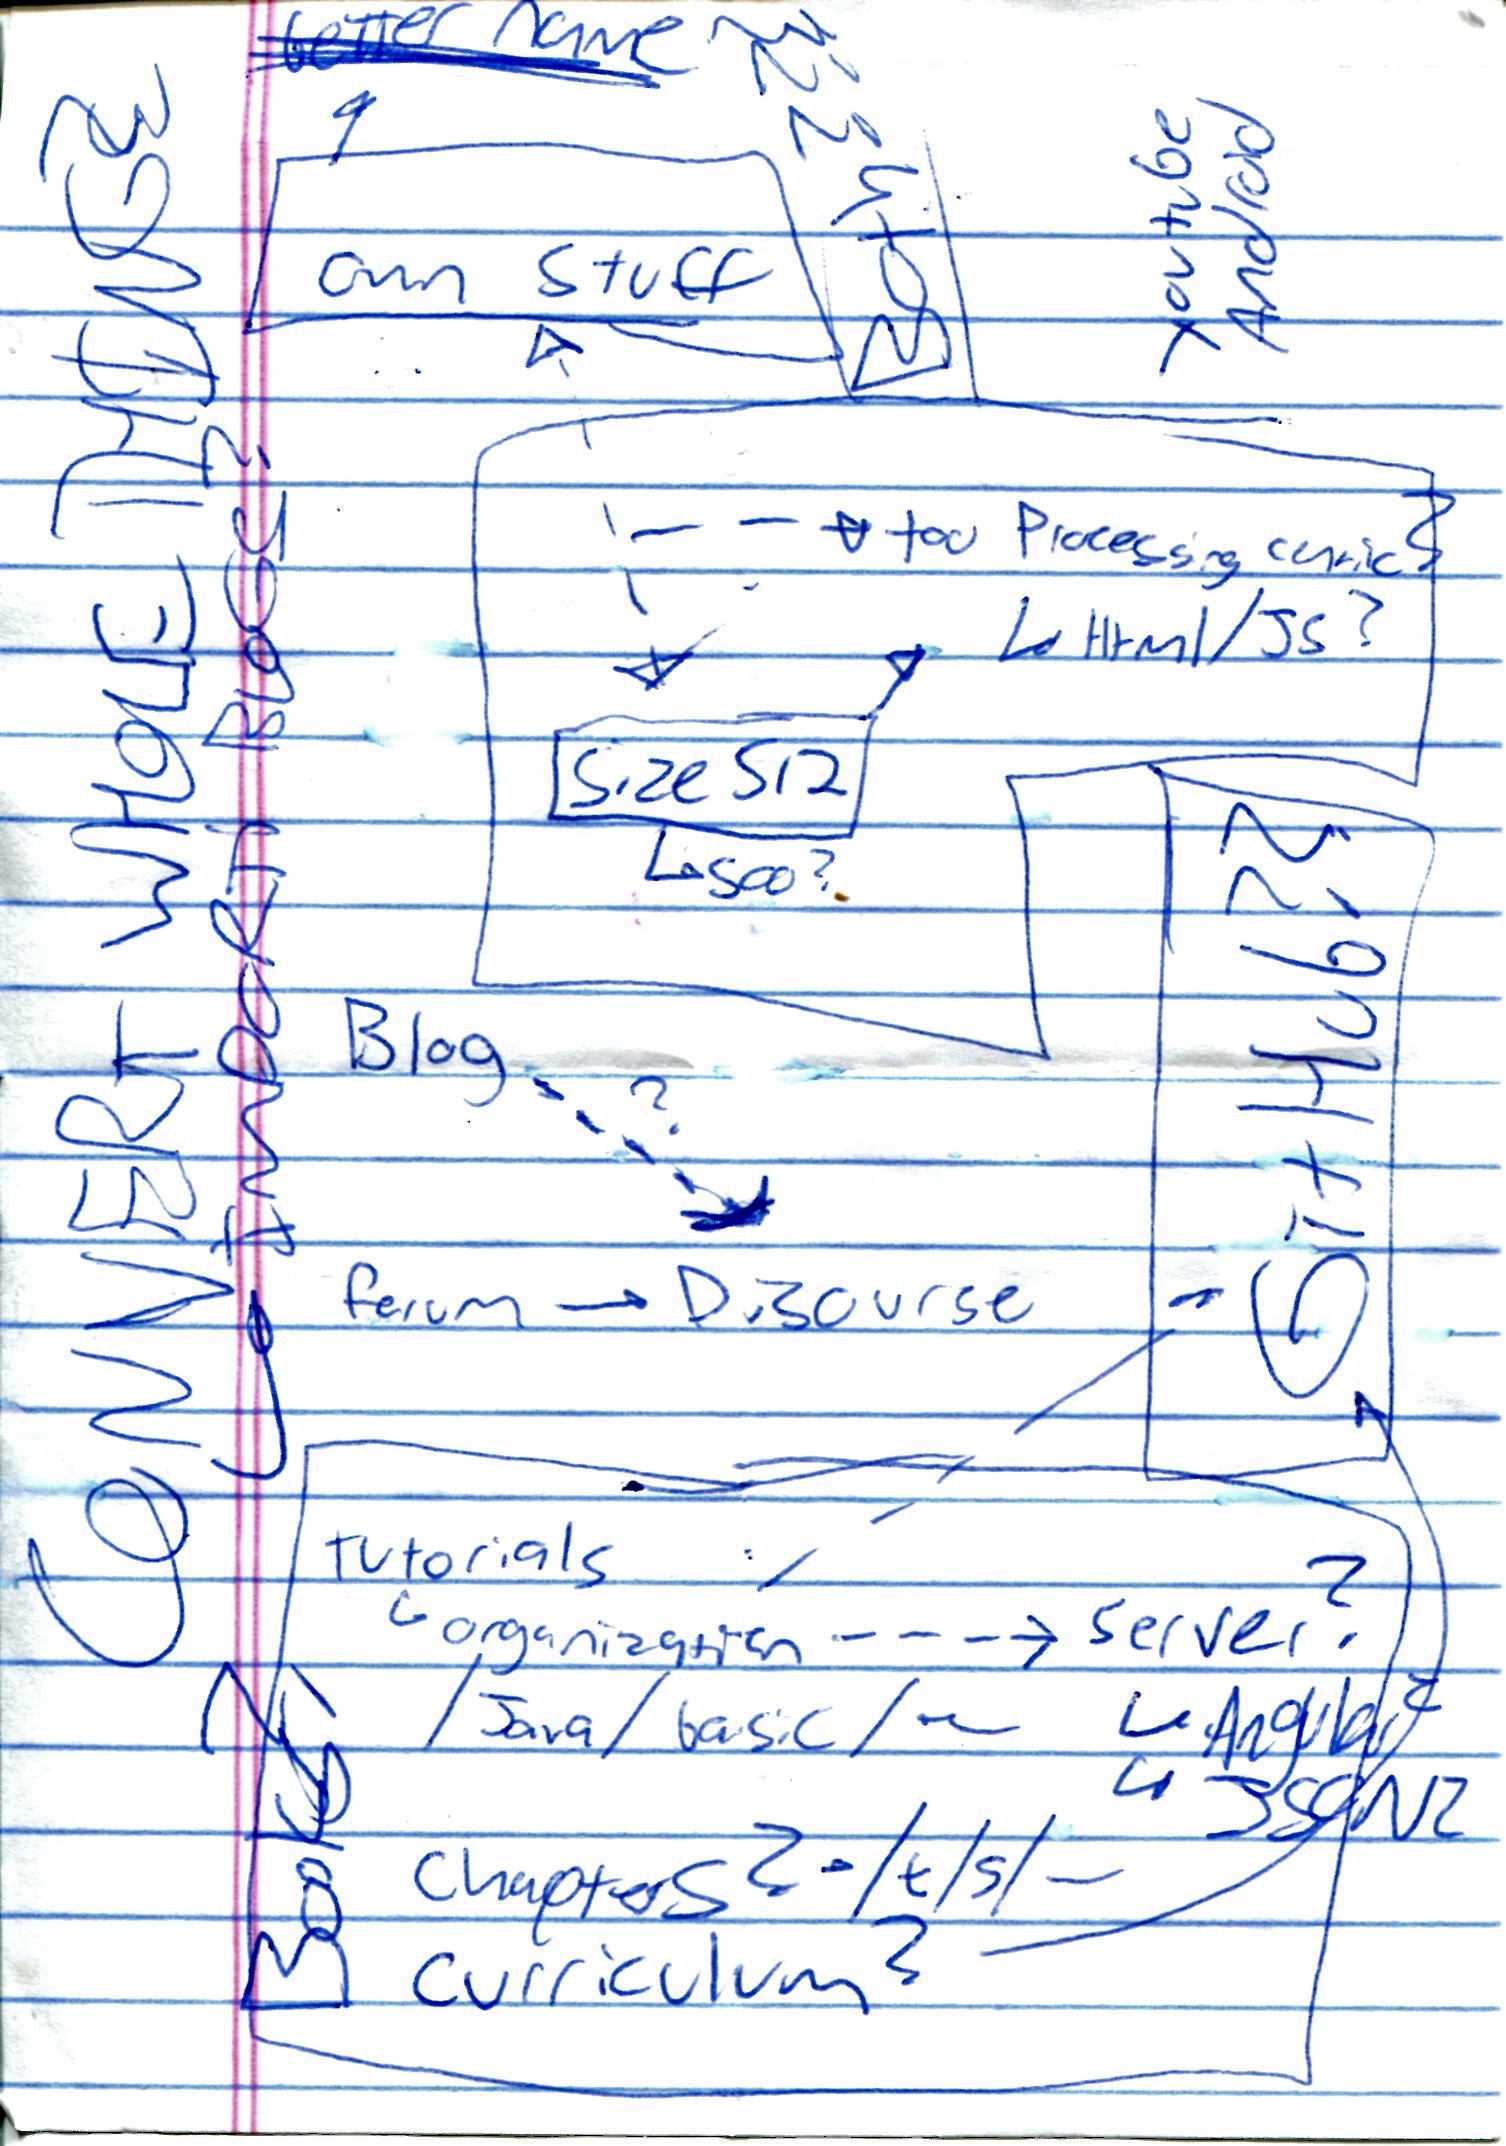 better name
own stuff
Both???
youtube
Android
too Processing
Html/JS?
Size 512
Blog
?
forum → Discourse
GitHub??
tutorials
organization ----> server?
/Java/basic/
Angular
JSON?
chapters? /t/s/
curriculum?
Books?
CONVERT WHOLE THING?
BLOGS?